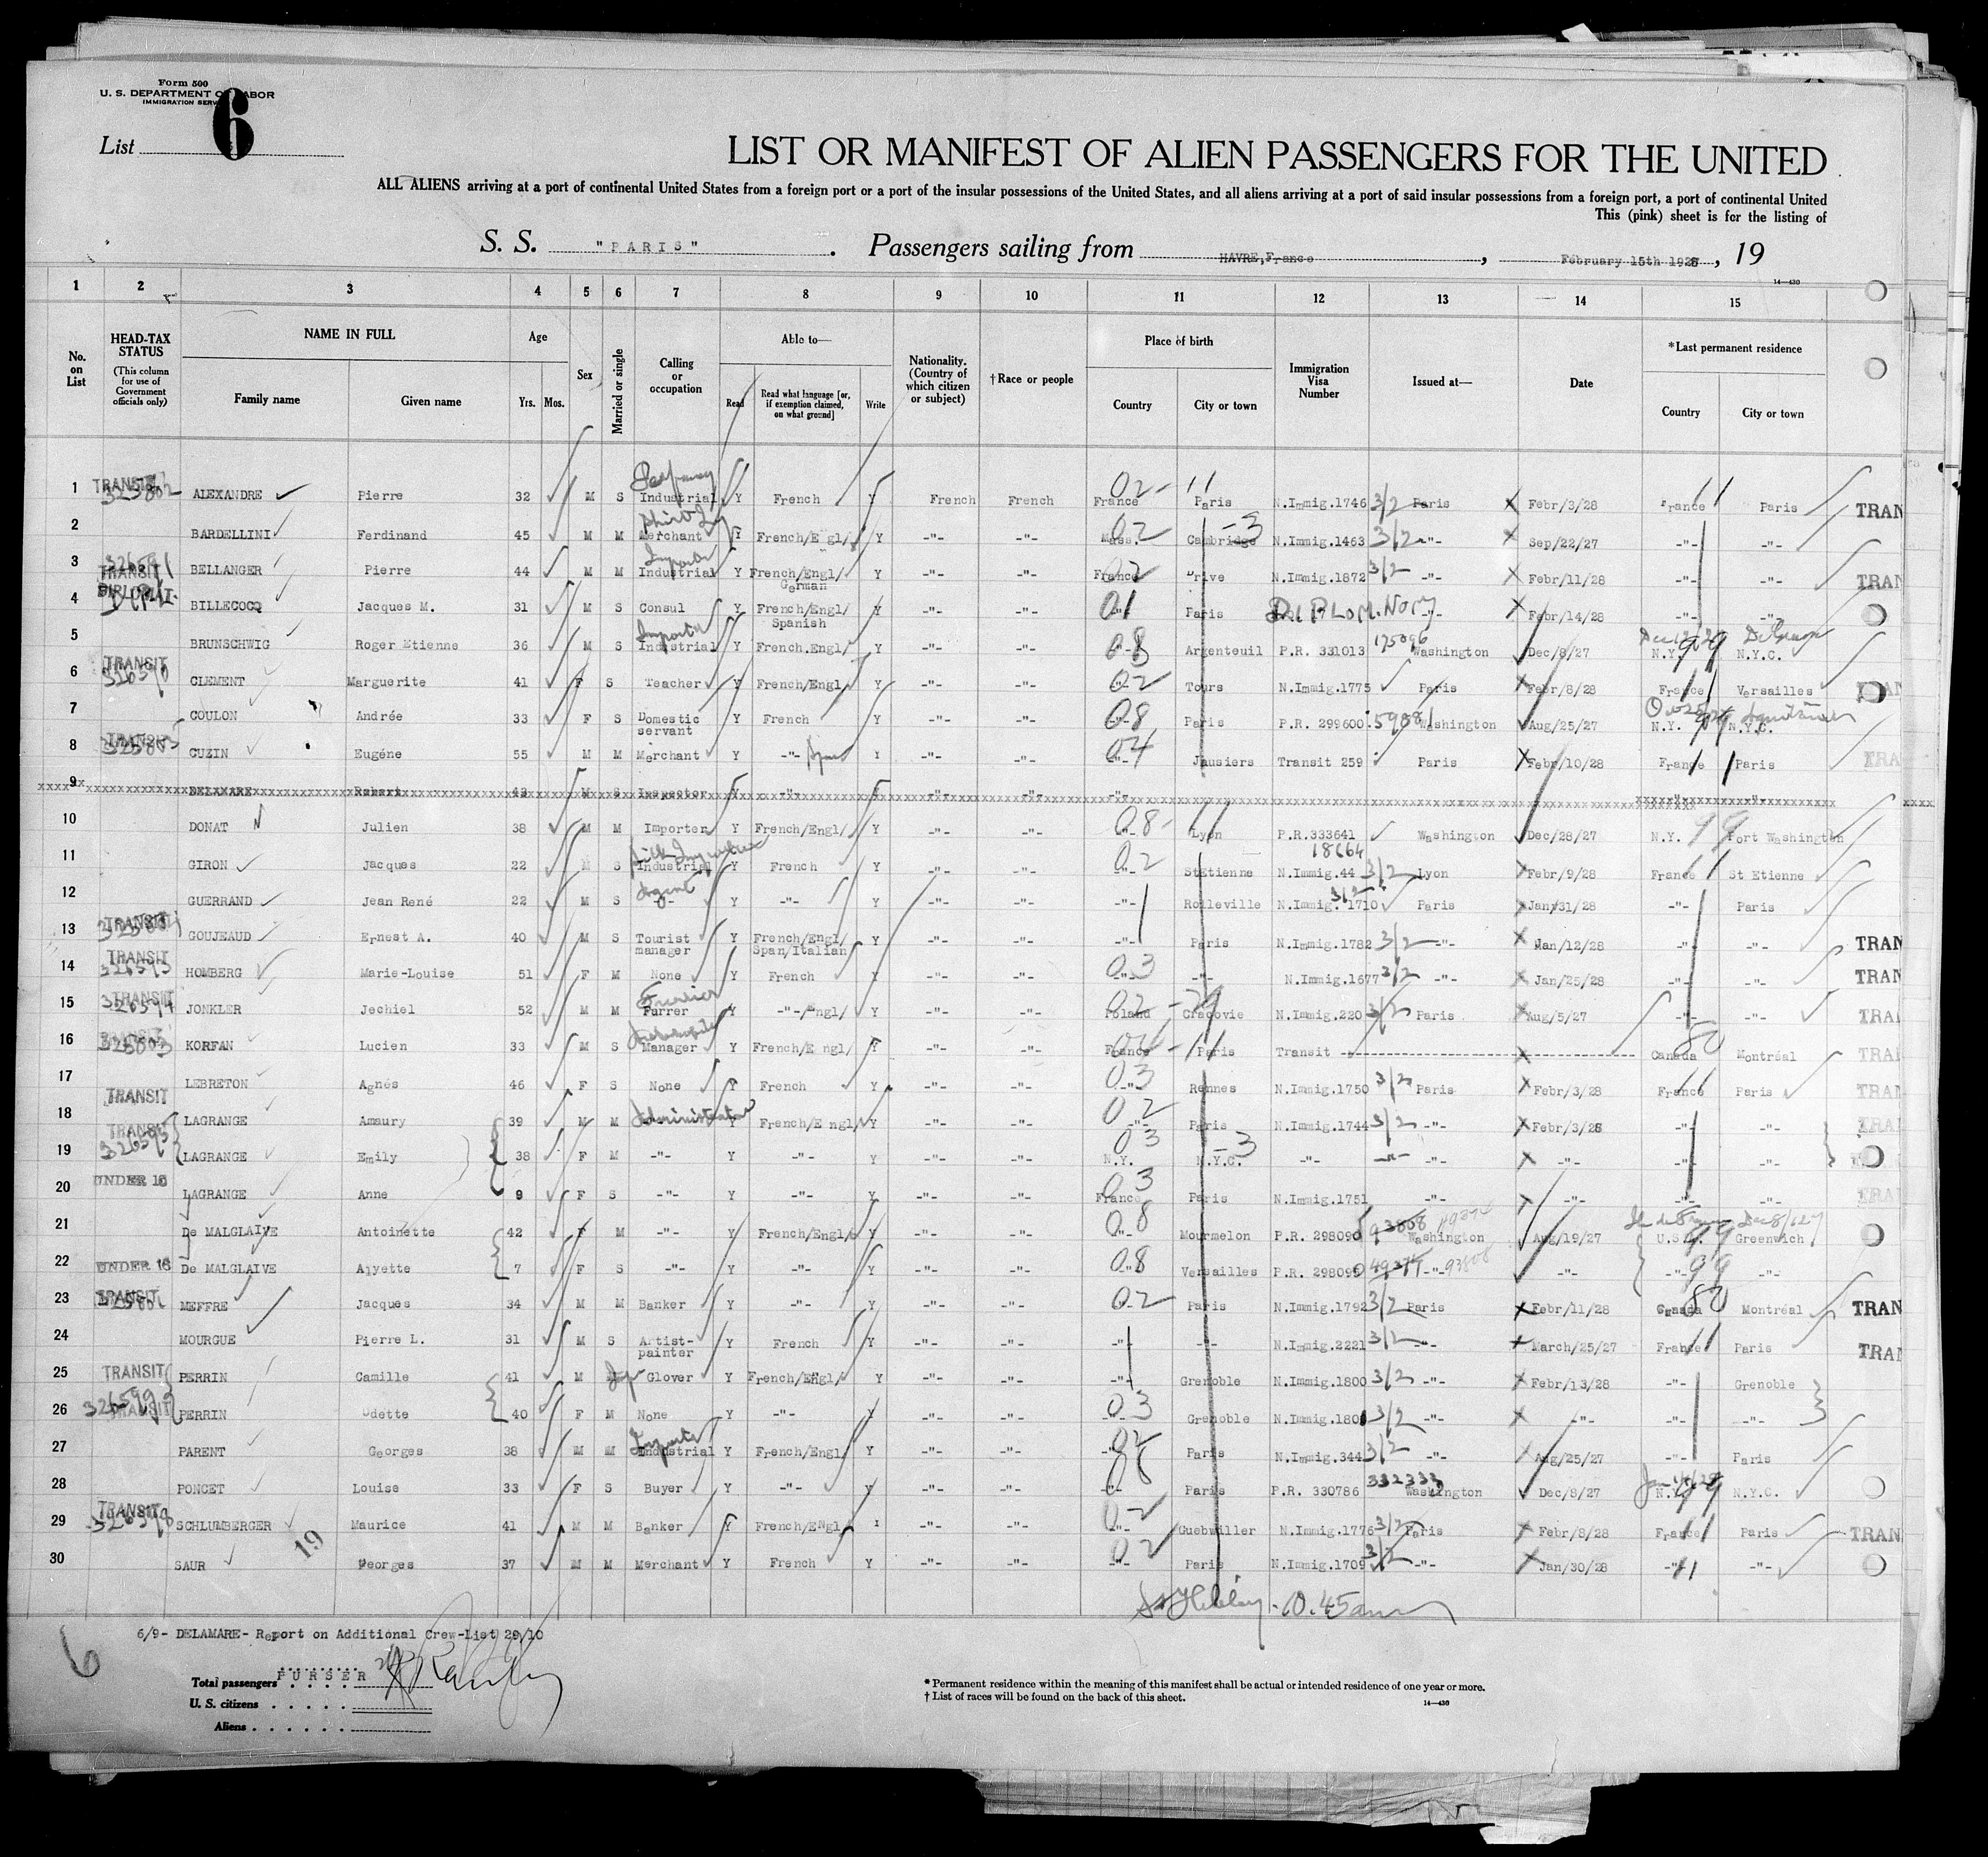 Form 500
U. S. DEPARTMENT OF LABOR
IMMIGRATION SERV
List 6
LIST OR MANIFEST OF ALIEN PASSENGERS FOR THE UNITED
ALL ALIENS arriving at a port of continental United States from a foreign port or a port of the insular possessions of the United States, and all aliens arriving at a port of said insular possessions from a foreign port, a port of continental United
This (pink) sheet is for the listing of
S. S. "PARIS" . Passengers sailing from HAVRE,France , February 15th 1928 , 19
14—430
1 2 3 4 5 6 7 8 9 10 11 12 13 14 15
No. on List
HEAD-TAX STATUS (This column for use of Government officials only)
NAME IN FULL Family name Given name
Age Yrs. Mos.
Sex
Married or single
Calling or occupation
Able to— Read Read what language [or, if exemption claimed, on what ground] Write
Nationality. (Country of which citizen or subject)
†Race or people
Place of birth Country City or town
Immigration Visa Number
Issued at—
Date
*Last permanent residence Country City or town
1 TRANSIT 325802 ALEXANDRE Pierre 32 M S Industrial Y French Y French French France 02- 11 Paris N.Immig.1746 3/2 Paris Febr/3/28 France 11 Paris TRAN
2 BARDELLINI Ferdinand 45 M M Merchant Y French/Engl/ Y -"- -"- Mass. 02 Cambridge -3 N.Immig.1463 3/2 -"- Sep/22/27 -"- -"-
3 TRANSIT BELLANGER Pierre 44 M M Importer Industrial Y French/Engl/ German Y -"- -"- France 02 Brive N.Immig.1872 3/2 -"- Febr/11/28 -"- -"- TRAN
4 DIPLOMAT BILLECOCQ Jacques M. 31 M S Consul Y French/Engl/ Spanish Y -"- -"- -"- 01 Paris DIPLOM. -"- Febr/14/28 -"- -"-
5 BRUNSCHWIG Roger Etienne 36 M S Importer Industrial Y French.Engl/ Y -"- -"- -"- 08 Argenteuil P.R. 331013 175096 Washington Dec/8/27 N.Y. 99 N.Y.C.
6 TRANSIT CLEMENT Marguerite 41 F S Teacher Y French/Engl/ Y -"- -"- -"- 02 Tours N.Immig.1775 Paris Febr/8/28 France 11 Versailles TRAN
7 COULON Andrée 33 F S Domestic servant Y French Y -"- -"- -"- 08 Paris P.R. 299600 59081 Washington Aug/25/27 N.Y. 99 N.Y.C.
8 TRANSIT CUZIN Eugéne 55 M M Merchant Y -"- Span Y -"- -"- -"- 04 Jausiers Transit 259 Paris Febr/10/28 France Paris TRA
9 DELAMARE Robert 43 M S Inspector Y -"- Y -"- -"- -"- -"- -"-
10 DONAT Julien 38 M M Importer Y French/Engl/ Y -"- -"- -"- 08- 11 Lyon P.R.333641 18664 Washington Dec/28/27 N.Y. 99 Port Washington
11 GIRON Jacques 22 M S Industrial Y French Y -"- -"- -"- 02 StEtienne N.Immig.44 3/2 Lyon Febr/9/28 France 11 St Etienne
12 GUERRAND Jean René 22 M S Agent -"- Y -"- Y -"- -"- -"- Rolleville N.Immig. 1710 3/2 Paris Jan/31/28 -"- Paris
13 TRANSIT GOUJEAUD Ernest A. 40 M S Tourist manager Y French/Engl/ Span/Italian Y -"- -"- -"- Paris N.Immig.1782 3/2 -"- Jan/12/28 -"- -"- TRAN
14 TRANSIT HOMBERG Marie-Louise 51 F M None Y French Y -"- -"- -"- 03 -"- N.Immig.1677 3/2 -"- Jan/25/28 -"- -"- TRAN
15 TRANSIT JONKLER Jechiel 52 M M Furrier Furrer Y -"-/Engl/ Y -"- -"- Poland 02 Cracovie N.Immig.220 3/2 Paris Aug/5/27 -"- -"- TRAN
16 TRANSIT 325803 KORFAN Lucien 33 M S Automobile Manager Y French/Engl/ Y -"- -"- France 04- 11 Paris Transit Canada 80 Montréal TRAN
17 TRANSIT LEBRETON Agnés 46 F S None Y French Y -"- -"- -"- 03 Rennes N.Immig.1750 3/2 Paris Febr/3/28 France 11 Paris TRAN
18 TRANSIT LAGRANGE Amaury 39 M M Administrator Y French/Engl/ Y -"- -"- -"- 02 Paris N.Immig.1744 3/2 -"- Febr/3/28 -"- -"- TRAN
19 326595 LAGRANGE Emily 38 F M -"- Y -"- Y -"- -"- N.Y. 03 N.Y.C. -3 -"- -"- -"- -"- -"- -"-
20 UNDER 16 LAGRANGE Anne 9 F S -"- Y -"- Y -"- -"- France 03 Paris N.Immig.1751 -"- -"- -"- -"- TRAN
21 De MALGLAIVE Antoinette 42 F M -"- Y French/Engl/ Y -"- -"- -"- 08 Mourmelon P.R. 298090 93808 Washington Aug/19/27 U.S.A. 99 Greenwich
22 UNDER 16 De MALGLAIVE Alyette 7 F S -"- Y -"- Y -"- -"- -"- 08 Versailles P.R. 298095 -"- 93808 -"- -"- 99 -"-
23 TRANSIT MEFFRE Jacques 34 M M Banker Y -"- Y -"- -"- -"- 02 Paris N.Immig.1792 3/2 Paris Febr/11/28 Canada 80 Montréal TRAN
24 MOURGUE Pierre L. 31 M S Artist-painter Y French Y -"- -"- -"- -"- N.Immig.2221 3/2 -"- March/25/27 France 11 Paris TRAN
25 TRANSIT PERRIN Camille 41 M Glover Y French/Engl/ Y -"- -"- -"- Grenoble N.Immig.1800 3/2 -"- Febr/13/28 -"- Grenoble
26 TRANSIT PERRIN Odette 40 F M None Y -"- Y -"- -"- -"- 03 Grenoble N.Immig.1801 3/2 -"- -"- -"- -"-
27 PARENT Georges 38 M M Importer Industrial Y French/Engl/ Y -"- -"- -"- 02 Paris N.Immig.344 3/2 -"- Aug/25/27 -"- Paris
28 PONCET Louise 33 F S Buyer Y -"- Y -"- -"- -"- 08 Paris P.R. 330786 332333 Washington Dec/8/27 N.Y. 99 N.Y.C.
29 TRANSIT 326598 SCHLUMBERGER Maurice 41 M M Banker Y French/Engl/ Y -"- -"- -"- 02 Guebwiller N.Immig.1776 3/2 Paris Febr/8/28 France 11 Paris TRAN
30 SAUR Georges 37 M M Merchant Y French Y -"- -"- -"- 02 Paris N.Immig.1709 3/2 -"- Jan/30/28 -"- 11 -"-
19
10.45am
6/9- DELAMARE- Report on Additional Crew-List 29/10
6
PURSER
Total passengers . . . .
U. S. citizens . . . . .
Aliens . . . . . .
* Permanent residence within the meaning of this manifest shall be actual or intended residence of one year or more.
† List of races will be found on the back of this sheet.
14—430